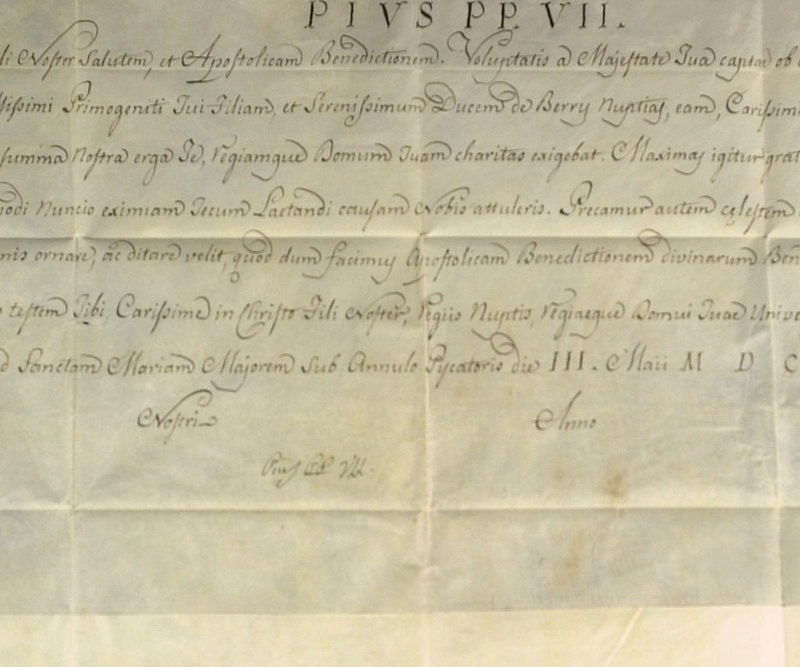 PIVS PP. VII.
li Noster Salutem, et Apostolicam Benedictionem. Voluptatis a Majestate Tua captae ob
issimi Primogeniti Tui Filiam, et Serenissimum Ducem de Berry Nuptias, eam, Carissim
summa Nostra erga Te, Regiamque Domum Tuam charitas exigebat. Maximas igitur grat
modi Nuncio eximiam Tecum Laetandi causam Nobis attuleris. Precamur autem cęlestem
nis ornare, ac ditare velit, quod dum facimus Apostolicam Benedictionem divinarum Ben
testem Tibi, Carissime in Christo Fili Noster, Regiis Nuptis, Regiaeque Domui Tuae Unive
d Sanctam Mariam Majorem Sub Annulo Pycatoris die III. Maii M D C
Nostri Anno
Pius PP. VII.